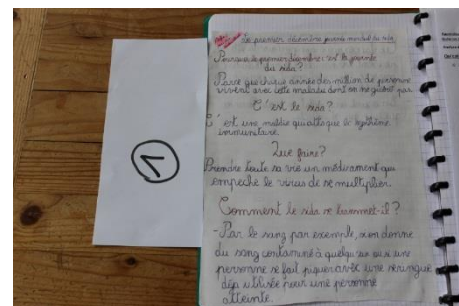 1
Le premier décembre journée mondial du sida
Pourquoi le premier décembre c'est la journée
du sida?
Parce que chaque année des million de personne
vivent avec cette maladie dont on ne guérit pas.
C'est le sida?
C'est une maldie qui attaque le système
immunitaire.
Que faire?
Prendre toute sa vie un médicament qui
empeche le virus de se multiplier.
Comment le sida se transmet-il?
- Par le sang par exemple, si on donne
du sang contaminé à quelqu'un ou si une
personne se fait piquer avec une seringue
déja utilisée pour une personne
atteinte.